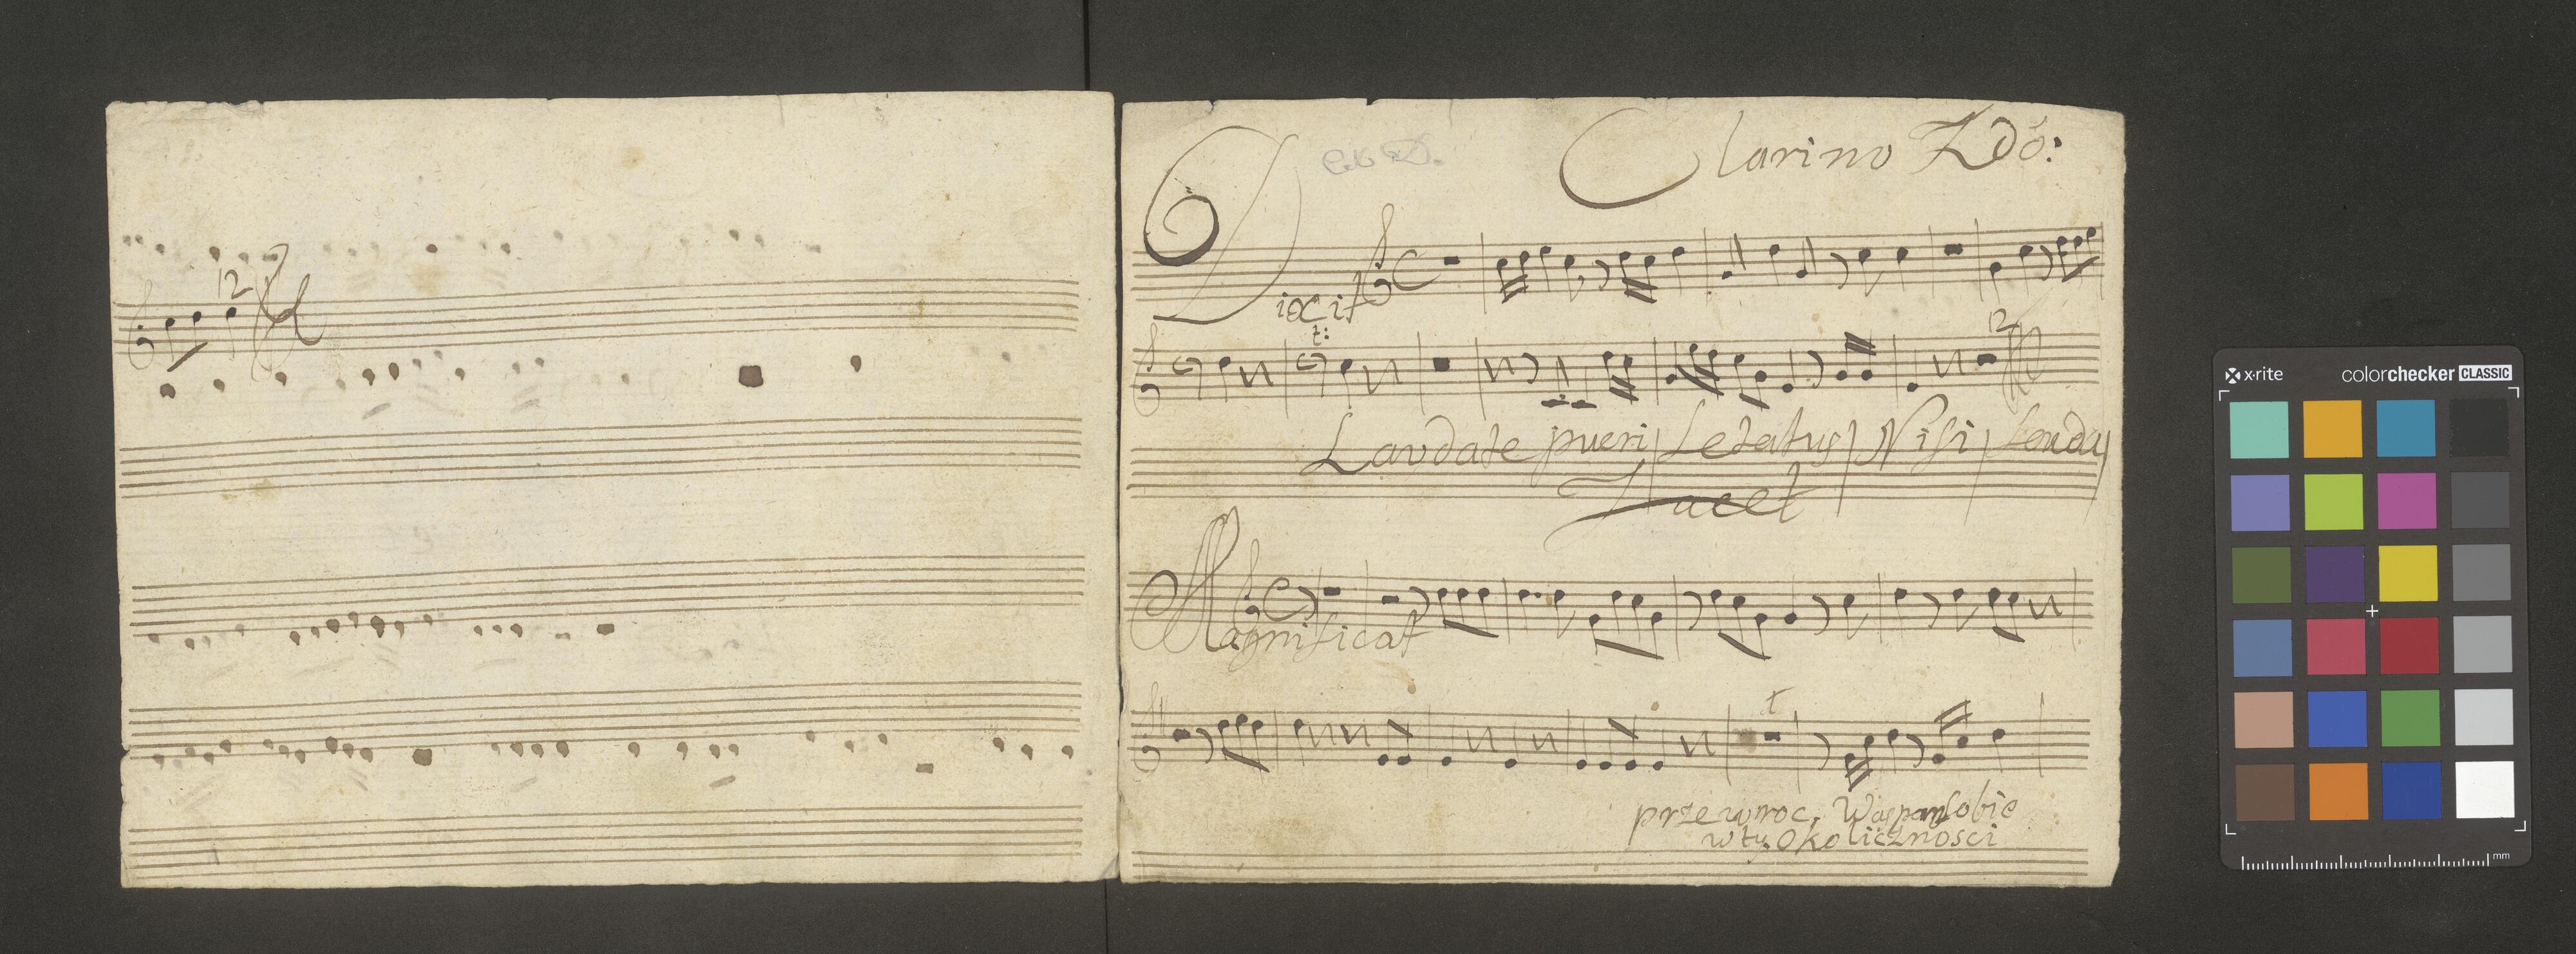 12
Clarino 2dő:
Dixit
t:
12
Laudate pueri / Letatus / Nisi / Lauda /
Tacet
Magnificat
t
przewroc, Waspan sobie
w ty Okolicznosci
x·rite colorchecker CLASSIC
mm